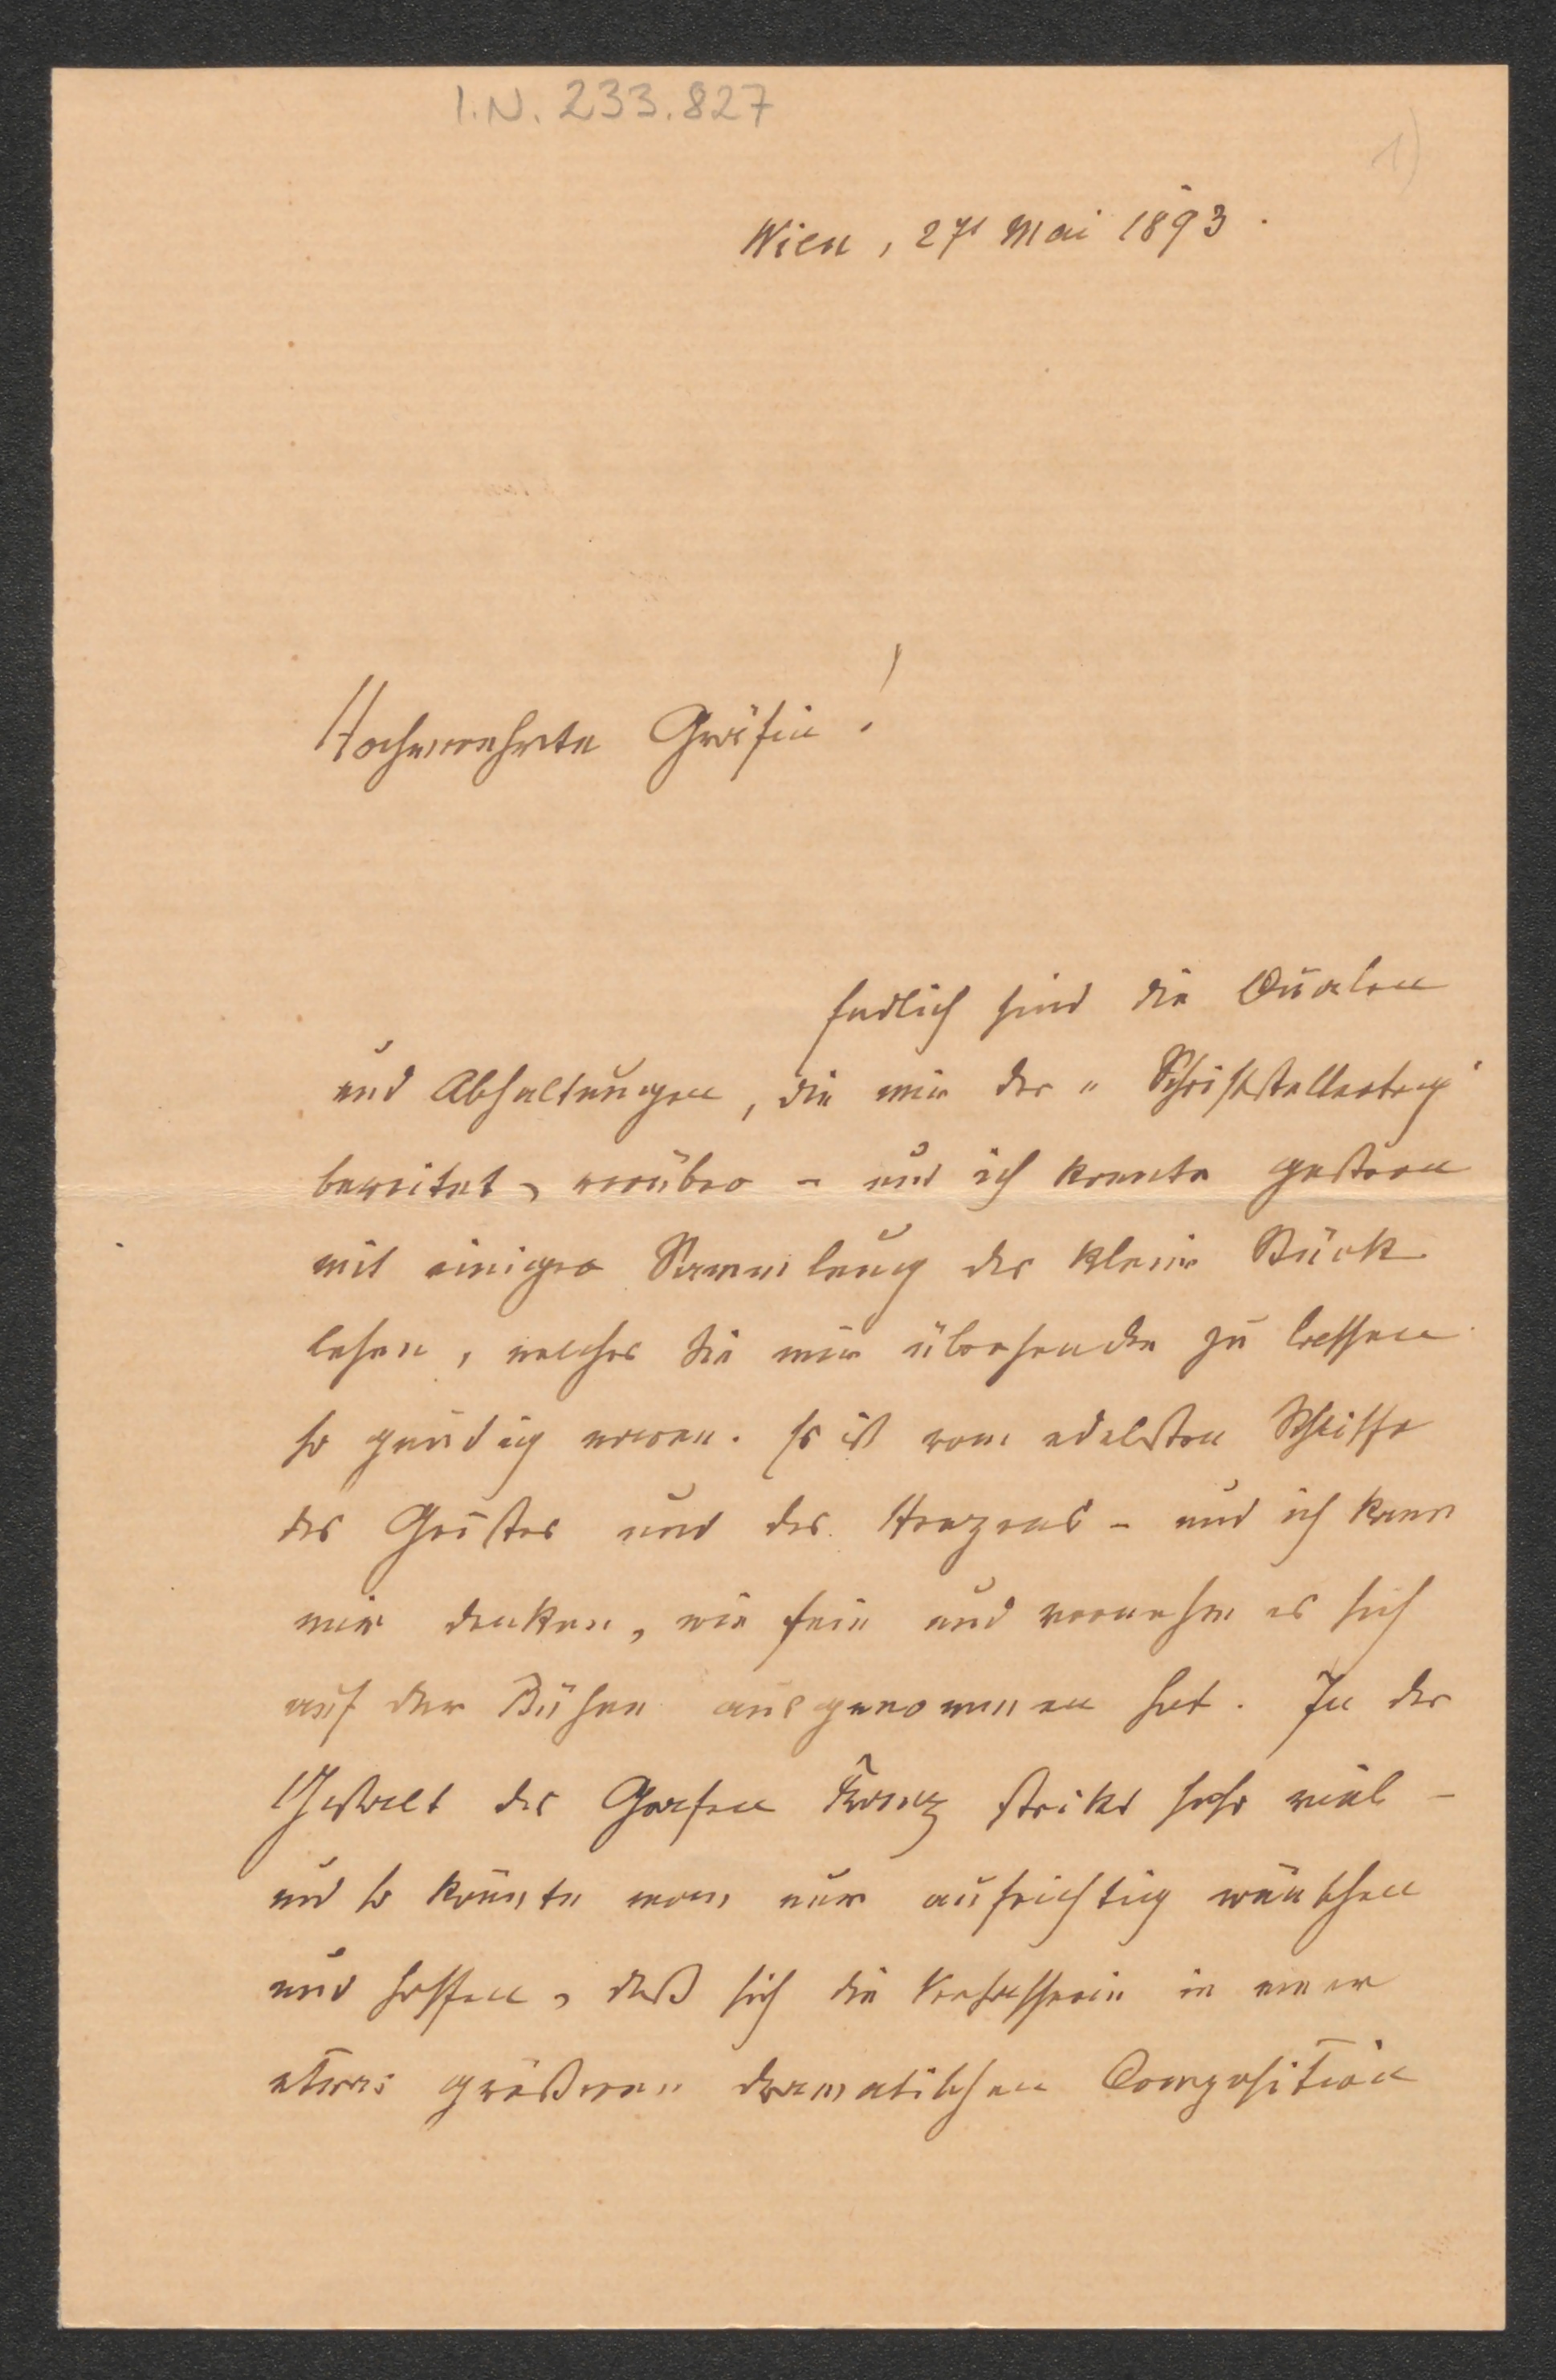 I.N. 233.827
1)
Wien, 27t Mai 1893.
Hochverehrte Gräfin!
Endlich sind die Qualen
und Abhaltungen, die mir der „Schriftstellertag"
bereitet, vorüber – und ich konnte gestern
mit einiger Sammlung das kleine Stück
lesen, welches Sie mir übersenden zu lassen
so gnädig waren. Es ist vom edelsten Schliffe
des Geistes und des Herzens – und ich kann
mir denken, wie fein und vornehm es sich
auf der Bühne ausgenommen hat. In der
Gestalt des Grafen Franz steckt sehr viel –
und so könnte man nur aufrichtig wünschen
und hoffen, daß sich die Verfasserin in einer
etwas größeren dramatischen Composition